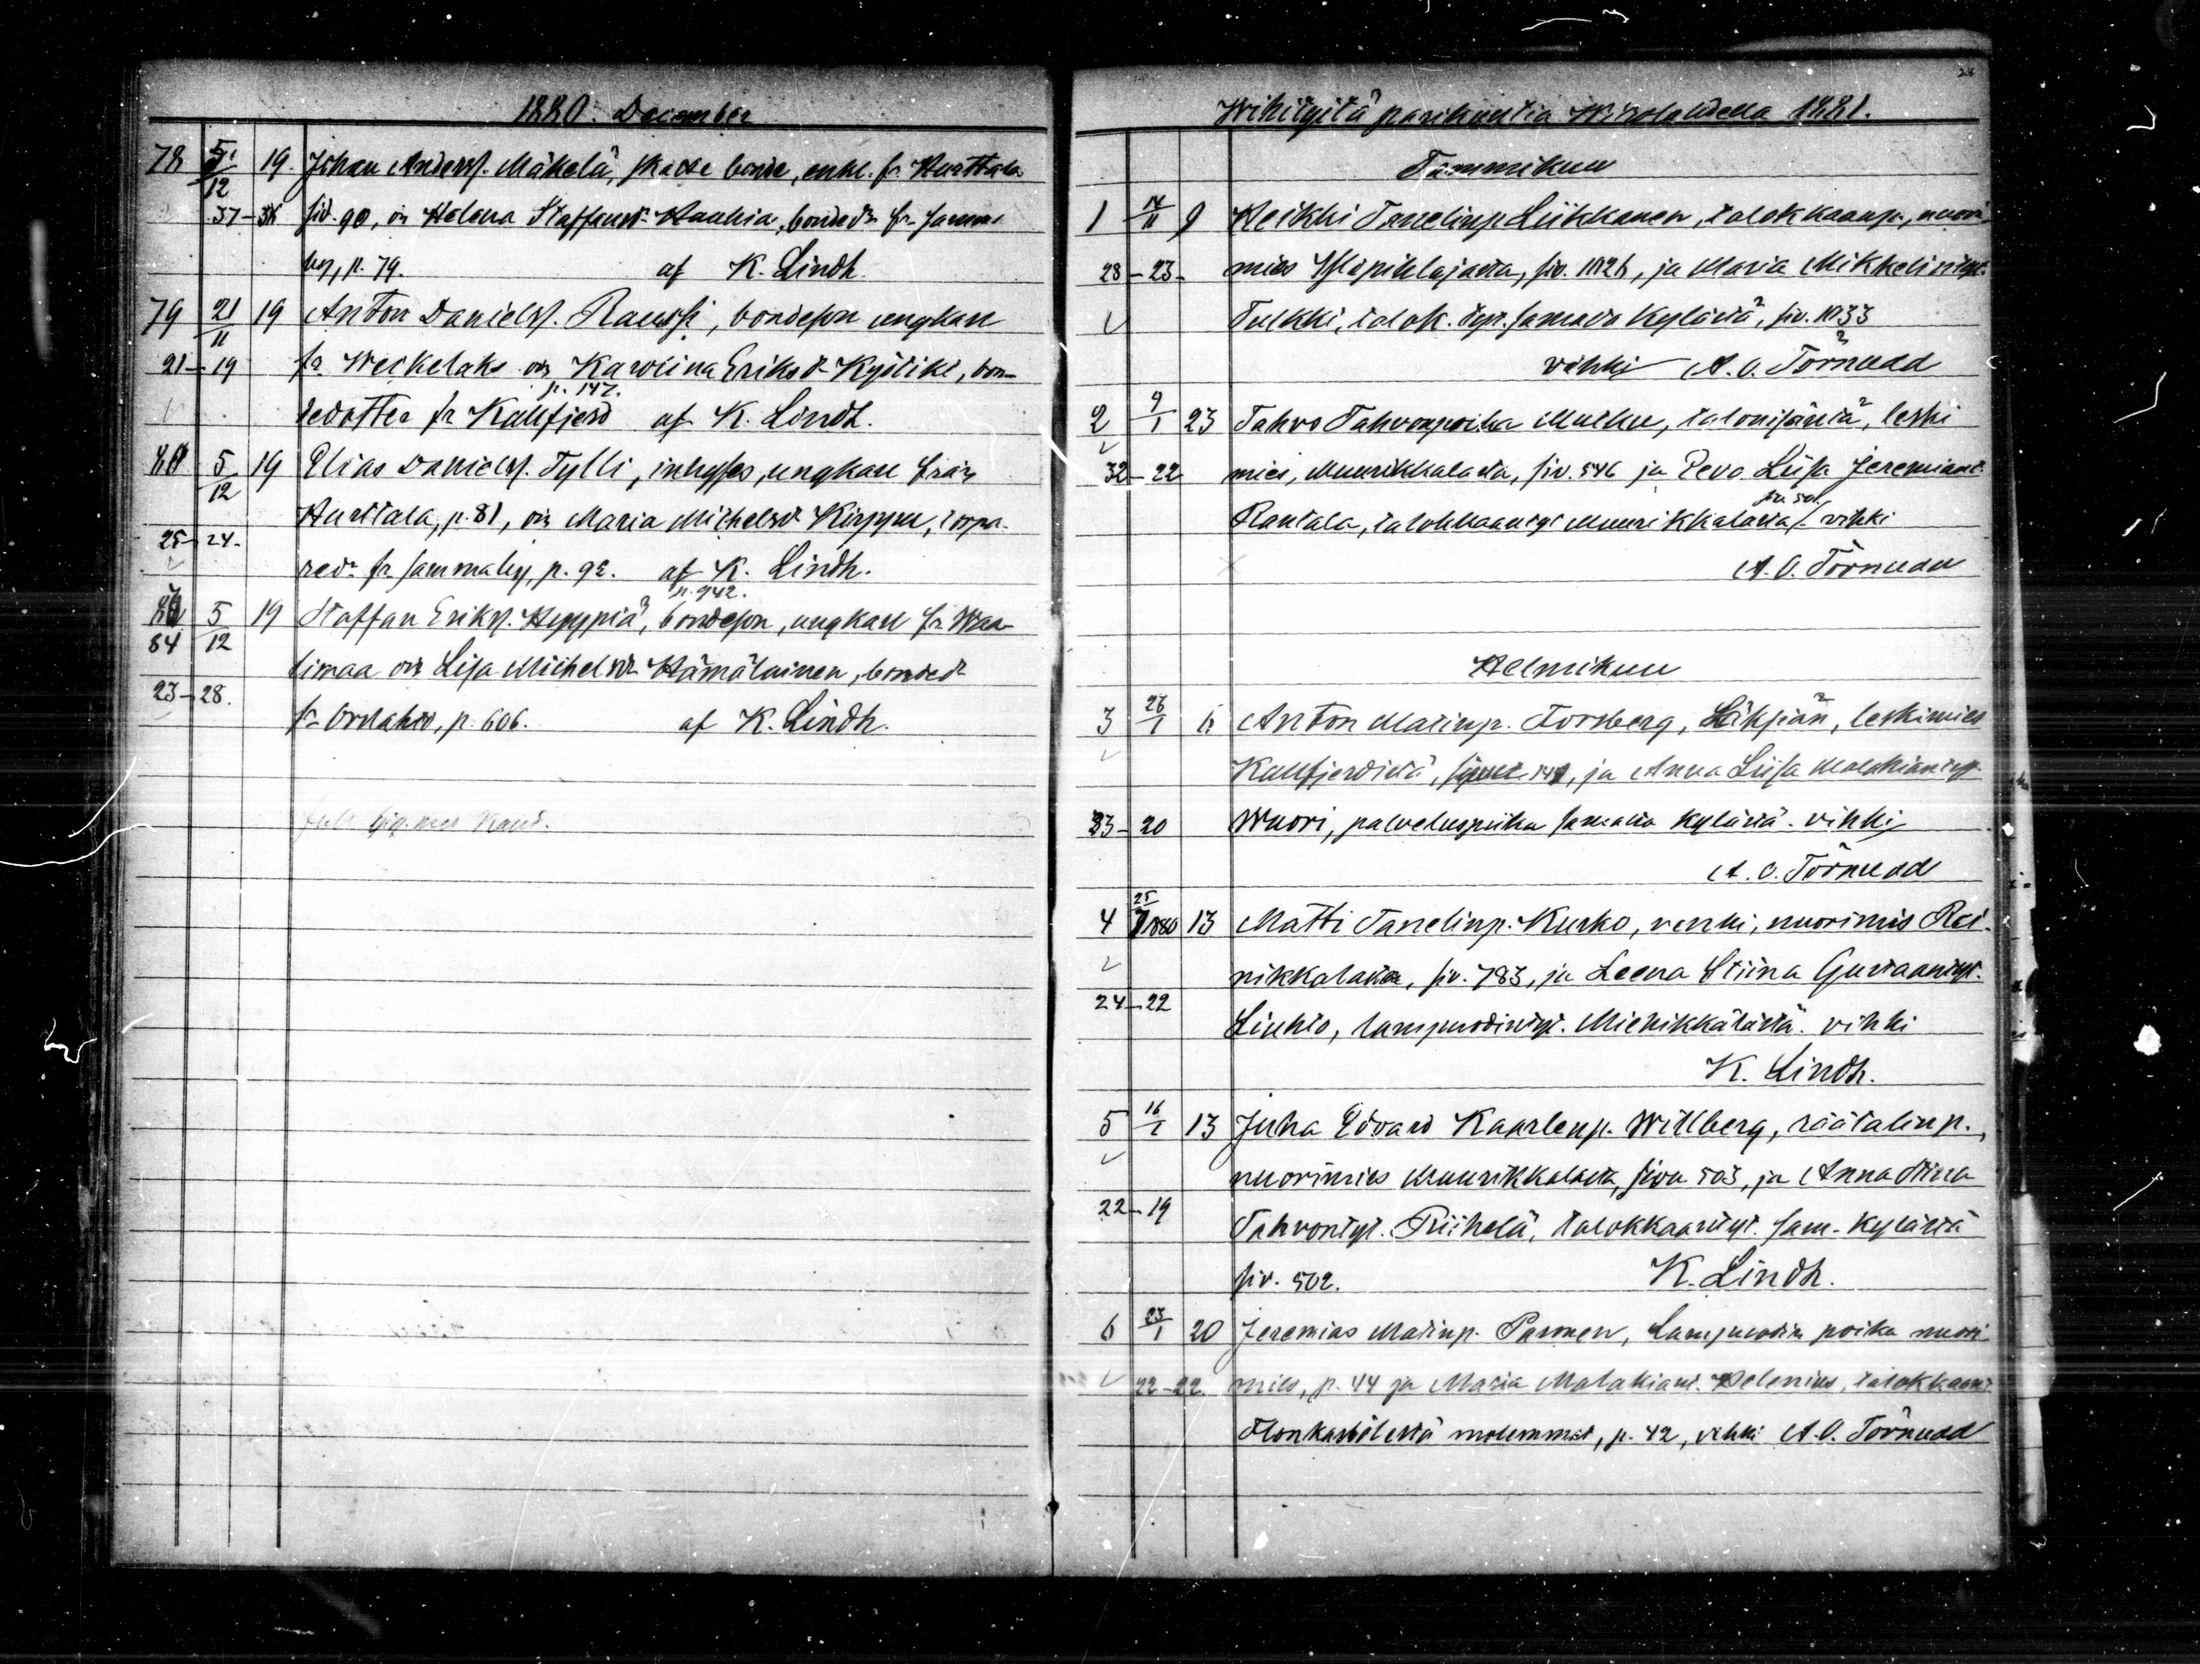 1880. December
78 5/12 19. Johan Anderss. Mäkelä, skatte bonde, enkl. fr. Hurttala
37-38 sid. 90, o. Helena Staffansdr Haukia, bondedr fr. Samma
by, p. 79. af K. Lindh
79 21/11 19 Anton Daniels. Raussi, bondeson ungkarl
21-19 fr. Weckelaks o. Karolina Eriksdr Kyöstiki, bon-
p. 147.
dedotter fr Kallfjerd af K. Lindh.
80 5/12 19 Elias Daniels. Tylli, inhyses, ungkarl från
Hurttala, p. 81, o. Maria Michelsdr Kirppu, torpa-
25-24.
redr fr. samma by, p. 92. af K. Lindh.
p. 942.
5/12 19 Staffan Eriks. Heppiä, bondeson, ungkarl fr. Waa-
84
limaa o. Lisa Michelsdr Hämäläinen, bondedr
23-28.
fr. Orslahti, p. 606. af K. Lindh.
28
Wihityitä parikuntia Wirolahdella 1881.
Tammikuu
1 9 Heikki Tanelinp. Liikkanen, talokkaanp., nuori-
28-23- mies Yläpihlajasta, siv. 1026, ja Maria Mikkelintyt.
Tulkki, talok. tyt. samasta kylästä, siv. 1033
vihki A. O. Törnudd
2 9/1 23 Tahvo Tahvonpoika Mulku, talonisäntä, leski
32-22 mies, Muurikkalasta, siv. 546 ja Eeva Liisa Jeremiant.
siv. 501
Rantala, talokkaantyt Muurikkalasta, vihki
A. O. Törnudd
Helmikuu
3 26/1 6 Anton Matinp. Forsberg, Läksiän, leskimies
Kallfjerdistä, ja Anna Liisa Malakiantyt.
33-20 Wuori, palveluspiika samasta kylästä. vihki
A. O. Törnudd
4 1880 13 Matti Tanelinp. Kurko, renki, nuorimies Rei-
nikkalasta, siv. 783, ja Leena Stiina Gustaantyt.
24-22
Linkio, lampuodintyt. Miehikkälästä. vihki
K. Lindh.
5 16/1 13 Juha Edvard Kaarlenp. Willberg, räätälinp.,
nuorimies Muurikkalasta, sivu 503, ja Anna Stiina
22-19
Tahvontyt. Riihelä, talokkaantyt. sam. kylästä
siv. 502. K. Lindh.
6 23/1 20 Jeremias Matinp. Paronen, Lampuodin poika nuori-
22-22. mies, p. 44 ja Maria Malakiant. Helenius, talokkaant.
Flonkarbölestä molemmat, p. 42, vihki A. O. Törnudd